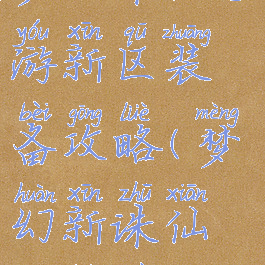 yóu xīn qū zhuāng
游新区装
bèi gōng lüè mèng
备攻略(梦
huàn xīn zhū xiān
幻新诛仙